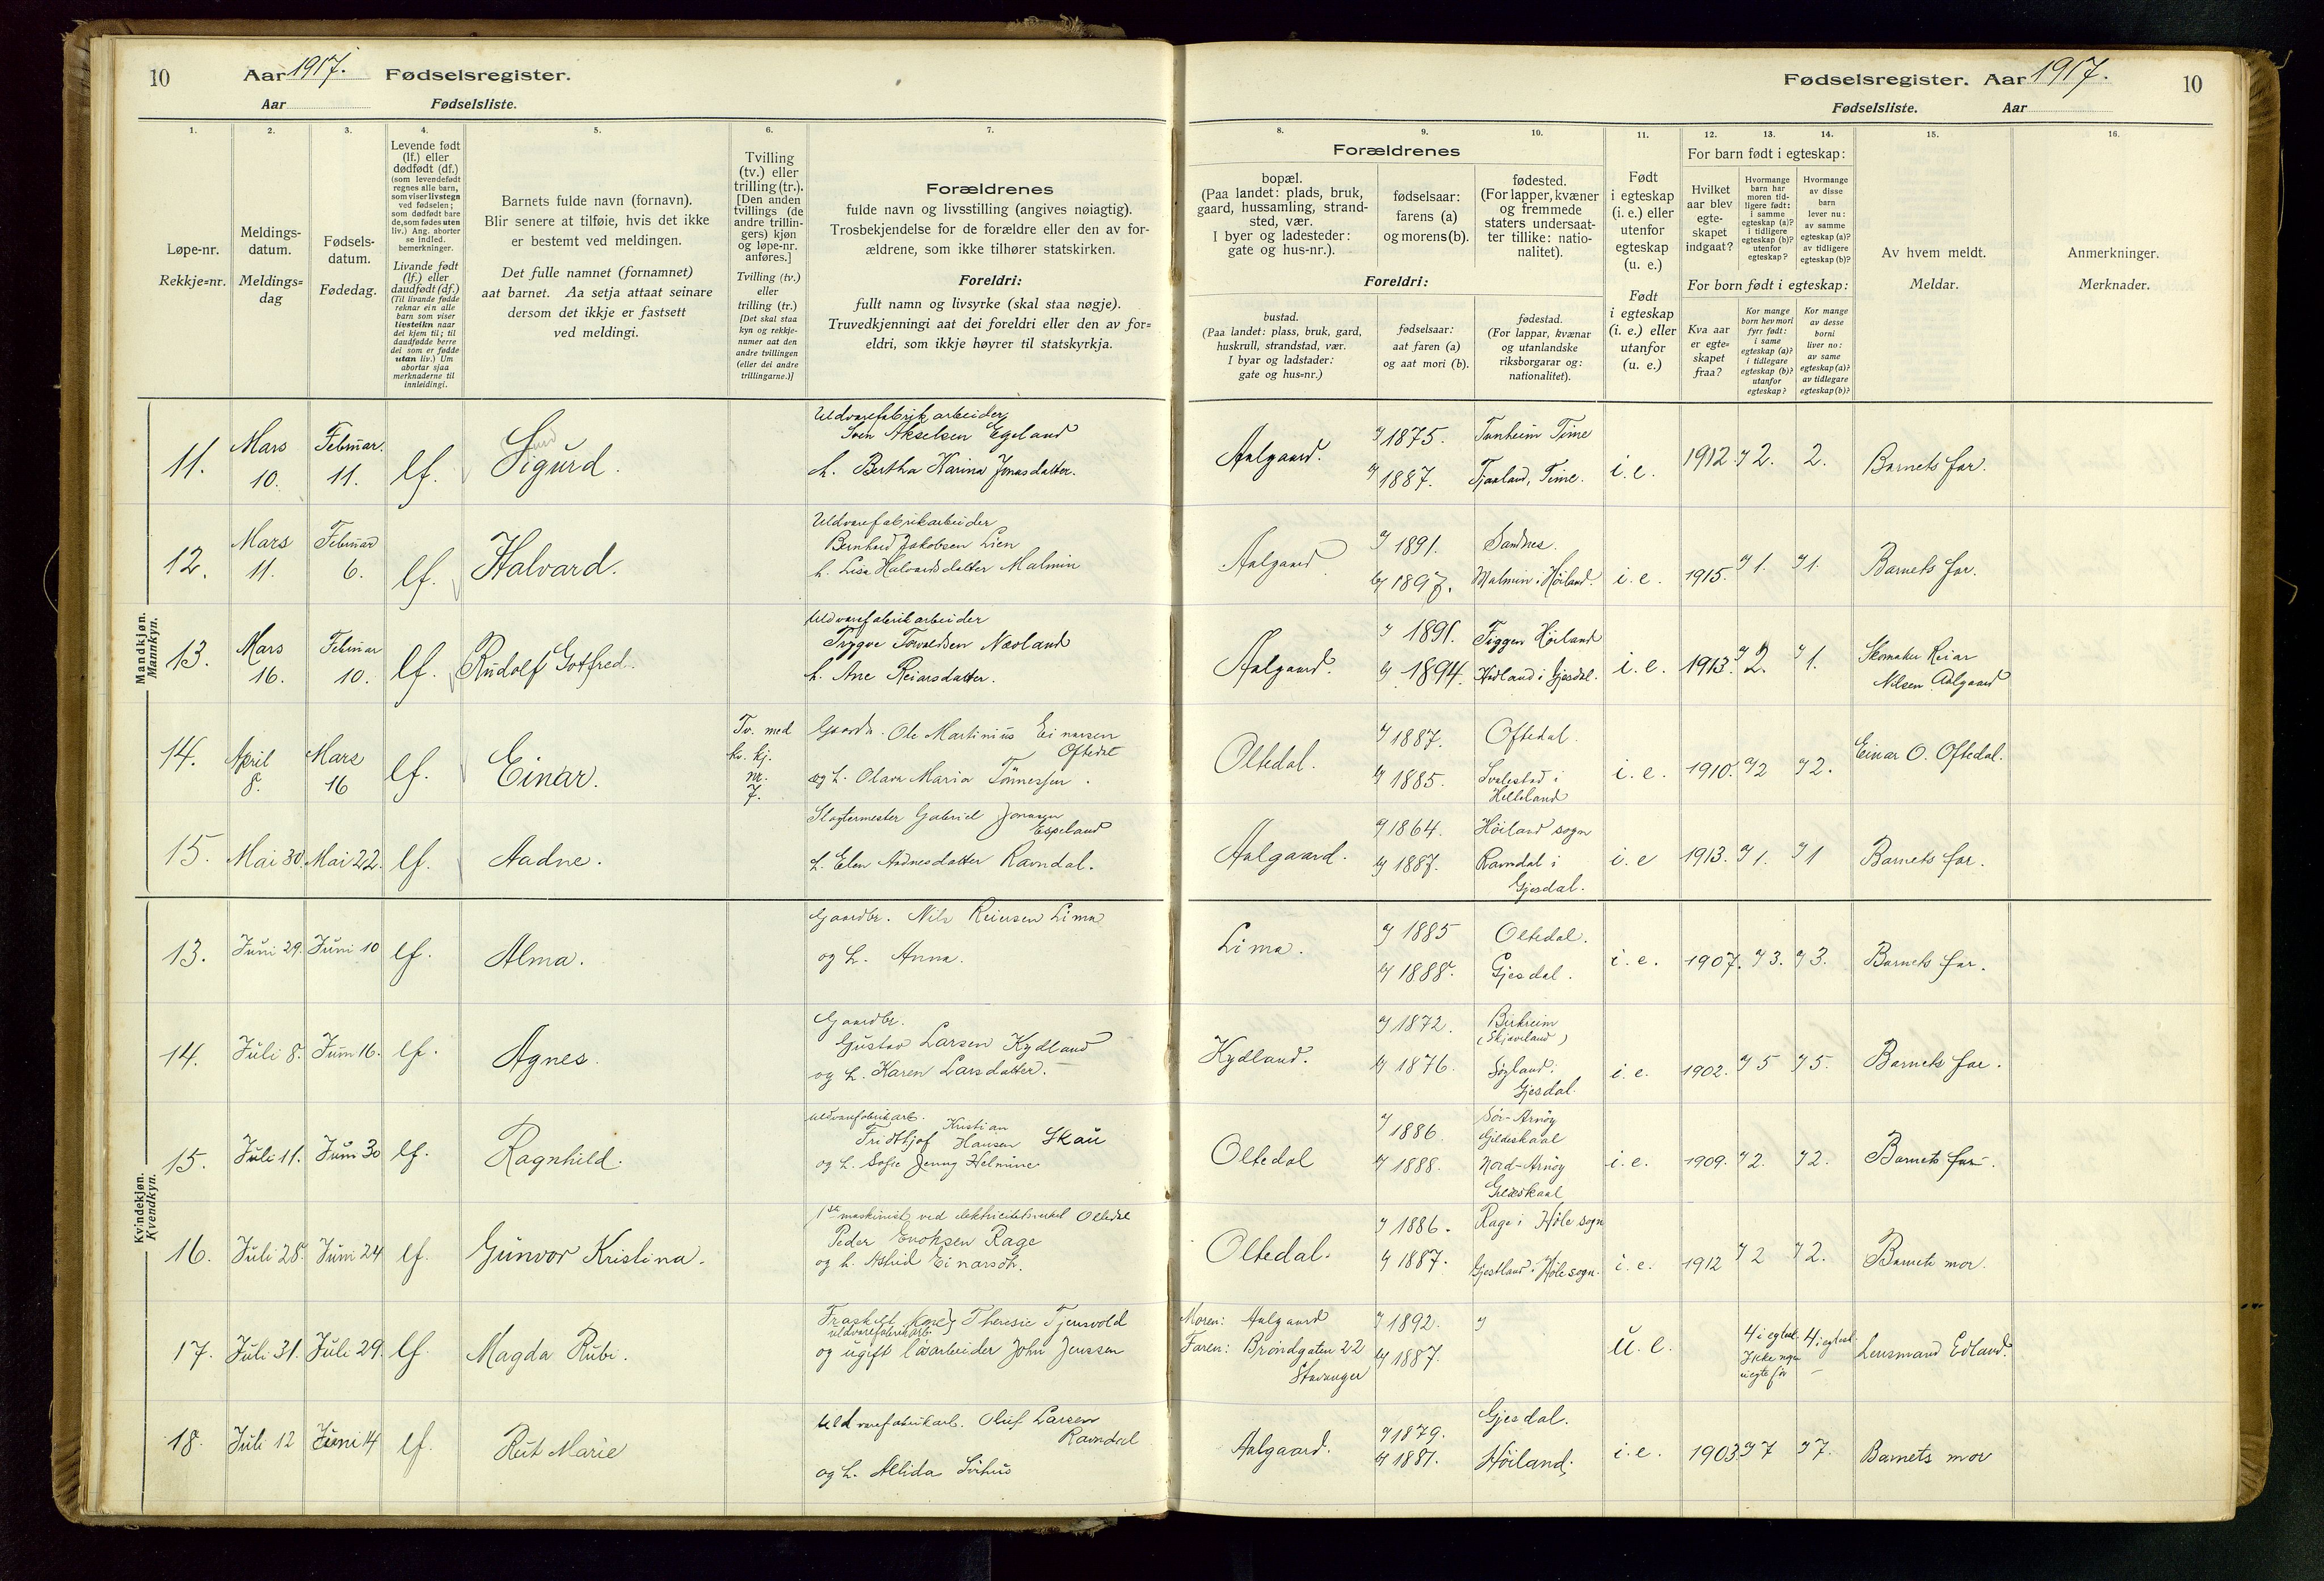 10
Aar 1917. Fødselsregister.
Aar Fødselsliste.
1.
2.
3.
4.
5.
6.
7.
Løpe-nr.
Rekkje=nr.
Meldings-
datum.
Meldings=
dag
Fødsels-
datum.
Fødedag.
Levende født
(lf.) eller
dødfødt (df.)
(som levendefødt
regnes alle barn,
som viser livstegn
ved fødselen;
som dødfødt bare
de, som fødes uten
liv.) Ang. aborter
se indled.
bemerkninger.
Livande født
(lf.) eller
daudfødt (df.)
(Til livande fødde
reknar ein alle
barn som viser
livsteikn naar
dei kjem til; til
daudfødde berre
dei som er fødde
utan liv.) Um
abortar sjaa
merknaderne til
innleidingi.
Barnets fulde navn (fornavn).
Blir senere at tilføie, hvis det ikke
er bestemt ved meldingen.
Det fulle namnet (fornamnet)
aat barnet. Aa setja attaat seinare
dersom det ikkje er fastsett
ved meldingi.
Tvilling
(tv.) eller
trilling (tr.).
[Den anden
tvillings (de
andre trillin-
gers) kjøn
og løpe-nr.
anføres.]
Tvilling (tv.)
eller
trilling (tr.)
[Det skal staa
kyn og rekkje-
numer aat den
andre tvillingen
(eller dei andre
trillingarne.)]
Forældrenes
fulde navn og livsstilling (angives nøiagtig).
Trosbekjendelse for de forældre eller den av for-
ældrene, som ikke tilhører statskirken.
Foreldri:
fullt namn og livsyrke (skal staa nøgje).
Truvedkjenningi aat dei foreldri eller den av for=
eldri, som ikkje høyrer til statskyrkja.
Mandkjøn.
Mannkyn.
11. Mars 10. Februar 11. lf. Sigurd.
Uldvarefabrik arbeider
Sven Akselsen Egeland
h. Bertha Karina Jonasdatter.
12. Mars 11. Februar 6. lf. Halvard.
Uldvarefabrikarbeider
Bernhard Jakobsen Lien
h. Lisa Halvardsdatter Malmin
13. Mars 16. Februar 10. lf. Rudolf Gotfred.
Uldvarefabrikarbeider
Trygve Torvaldsen Næoland
h. Ane Reiarsdatter.
14. April 8. Mars 16 lf. Einar.
Tv. med
kv. kj.
nr.
7.
Gaardbr. Ole Martinius Einarsen
Oftedal
og h. Olava Maria Tønnessen.
15. Mai 30. Mai 22. lf. Aadne.
Slagtermester Gabriel Jonassen
Espeland
h. Elen Aadnesdatter Ravndal.
Kvindekjøn.
Kvendkyn.
13. Juni 29. Juni 10 lf. Alma.
Gaardbr. Nils Reiersen Lima
og h. Anna.
14. Juli 8. Juni 16. lf. Agnes.
Gaardbr.
Gustav Larsen Kydland
og h. Karen Larsdatter.
15. Juli 11. Juni 30 lf. Ragnhild.
Uldvarefabrikarb.
Kristian
Fridthjof Hansen Skau
og h. Sofie Jenny Helmine
16. Juli 28. Juni 24 lf. Gunvor Kristina.
1ste maskinist ved elektricitetsverket Oltedal
Peder Enoksen Rage
og h. Astrid Einarsdtr.
17. Juli 31. Juli 29. lf. Magda Rubi.
Fraskilt kone Theresie Tjensvold
uldvarefabrikarb.
og ugift løsarbeider John Jenssen
18. Juli 12 Juni 14 lf. Rut Marie
Uldvarefabrikarb. Oluf Larsen
Ravndal
og h. Allida Svihus
Fødselsregister. Aar 1917.
10
Fødselsliste. Aar
8.
9.
10.
11.
12.
13.
14.
15.
16.
Forældrenes
bopæl.
(Paa landet: plads, bruk,
gaard, hussamling, strand-
sted, vær.
I byer og ladesteder:
gate og hus-nr.).
fødselsaar:
farens (a)
og morens (b).
fødested.
(For lapper, kvæner
og fremmede
staters undersaat-
ter tillike: natio-
nalitet).
Foreldri:
bustad.
(Paa landet: plass, bruk, gard,
huskrull, strandstad, vær.
I byar og ladstader:
gate og hus=nr.)
fødselsaar:
aat faren (a)
og aat mori (b).
fødestad.
(For lappar, kvænar
og utanlandske
riksborgarar og:
nationalitet).
Født
i egteskap
(i. e.) eller
utenfor
egteskap
(u. e.)
Født
i egteskap
(i. e.) eller
utanfor
(u. e.)
For barn født i egteskap:
Hvilket
aar blev
egte-
skapet
indgaat?
Hvormange
barn har
moren tid-
ligere født:
i samme
egteskap (a)?
i tidligere
egteskap (b)?
utenfor
egteskap?
Hvormange
av disse
barn
lever nu:
av samme
egteskap (a)?
av tidligere
egteskap (b)?
For born født i egteskap:
Kva aar
er egte=
skapet
fraa?
Kor mange
born hev mori
fyrr født:
i same
egteskap (a)?
i tidlegare
egteskap (b)?
utanfor
egteskap?
Kor mange
av desse
borni
liver no:
av same
egteskap (a)?
av tidlegare
egteskap (b)?
Av hvem meldt.
Meldar.
Anmerkninger.
Merknader.
Aalgaard. a) 1875. Tunheim Time
b) 1887. Tjaaland, Time. i. e. 1912. a) 2. 2. Barnets far.
Aalgaard a) 1891. Sandnes.
b) 1897. Malmin i Høiland. i. e. 1915. a) 1. a) 1. Barnets far.
Aalgaard. a) 1891. Figgen Høiland
b) 1894. Hedland i Gjesdal. i. e. 1913. a) 2. a) 1. Skomaker Reiar
Nilsen Aalgaard
Oltedal. a) 1887. Oftedal.
b) 1885. Svalestad i
Helleland i. e. 1910. a) 2 a) 2. Einar O. Oftedal.
Aalgaard. a) 1864. Høiland sogn
b) 1887. Ravndal i
Gjesdal. i. e 1913. a) 1. a) 1 Barnets far.
Lima. a) 1885 Oltedal.
b) 1888. Gjesdal. i. e. 1907. a) 3. a) 3. Barnets far.
Kydland. a) 1872. Birkreim
(Skjæveland)
b) 1876. Søyland i
Gjesdal. i. e. 1902. a) 5 a) 5. Barnets far.
Oltedal a) 1886. Sør-Arnøy
Gildeskaal
b) 1888. Nord-Arnøy
Gildeskaal i. e. 1909. a) 2. a) 2. Barnets far.
Oltedal. a) 1886. Rage i Høle sogn
b) 1887. Gjestland i Høle sogn. i. e. 1912 a) 2 a) 2. Barnets mor.
Moren: Aalgaard a) 1892.
Faren: Brøndgaten 22 b) 1887.
Stavanger
u. e. 4 i egtesk. 4 i egtesk. Lensmand Edland.
Ikke
Aalgaard. a) 1879. Gjesdal.
b) 1881. Høiland. i. e. 1903 a) 7 a) 7. Barnets mor